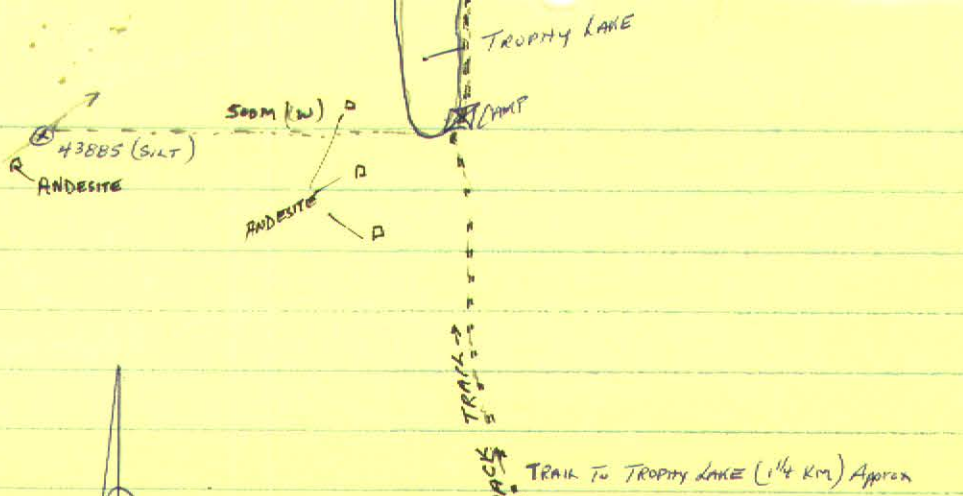 TROPHY LAKE
500M (W)
CAMP
43885 (SILT)
ANDESITE
ANDESITE
TRAIL
ACK
TRAIL TO TROPHY LAKE (1 1/4 KM) APPROX